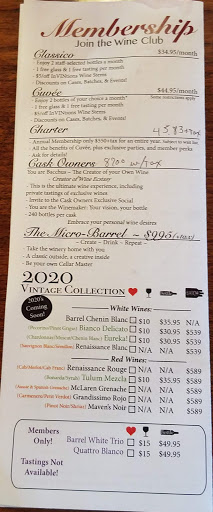 Membership
Join the Wine Club
Classico $34.95/month
· Enjoy 2 staff-selected bottles a month
· 1 free glass & 1 free tasting per month
· $5/off InVINtions Wine Stems
· Discounts on Cases, Batches, & Events!
Cuvée $44.95/month
· Enjoy 2 bottles of your choice a month* *Some restrictions apply
· 1 free glass & 1 free tasting per month
· $5/off InVINtions Wine Stems
· Discounts on Cases, Batches, & Events!
Charter 4583+tax
· Annual Membership only $350+tax for an entire year. Subject to wait list
· All the benefits of Cuvée, plus exclusive parties, and member perks
· Ask for details!
Cask Owners 8700 w/tax
You are Bacchus - The Creator of your Own Wine
- Creator of Wine Ecstasy
- This is the ultimate wine experience, including
private tastings of exclusive wines
· Invite to the Cask Owners Exclusive Social
· You are the Winemaker: Your vision, your bottle
· 240 bottles per cask
Embrace your personal wine desires
The Micro-Barrel ~ $995(+TAX)
~ Create ~ Drink ~ Repeat ~
· Take the winery home with you
· A classic outside, a creative inside
· Be your own Cellar Master
2020
Vintage Collection
2020's
Coming
Soon!
White Wines:
Barrel Chenin Blanc $10 $35.95 N/A
Bianco Delicato $10 $30.95 $539
Eureka! $10 $30.95 $539
Renaissance Blanc N/A N/A $539
Red Wines:
(Cab/Merlot/Cab Franc) Renaissance Rouge N/A N/A $589
Tulum Mezcla $10 $35.95 $589
McLaren Grenache N/A N/A $589
(Carmenere/Petit Verdot) Grandissimo Rojo N/A N/A $589
(Pinot Noir/Shiraz) Maven's Noir N/A N/A $589
Members
Only!
Barrel White Trio $15 $49.95
Quattro Blanco $15 $49.95
Tastings Not
Available!